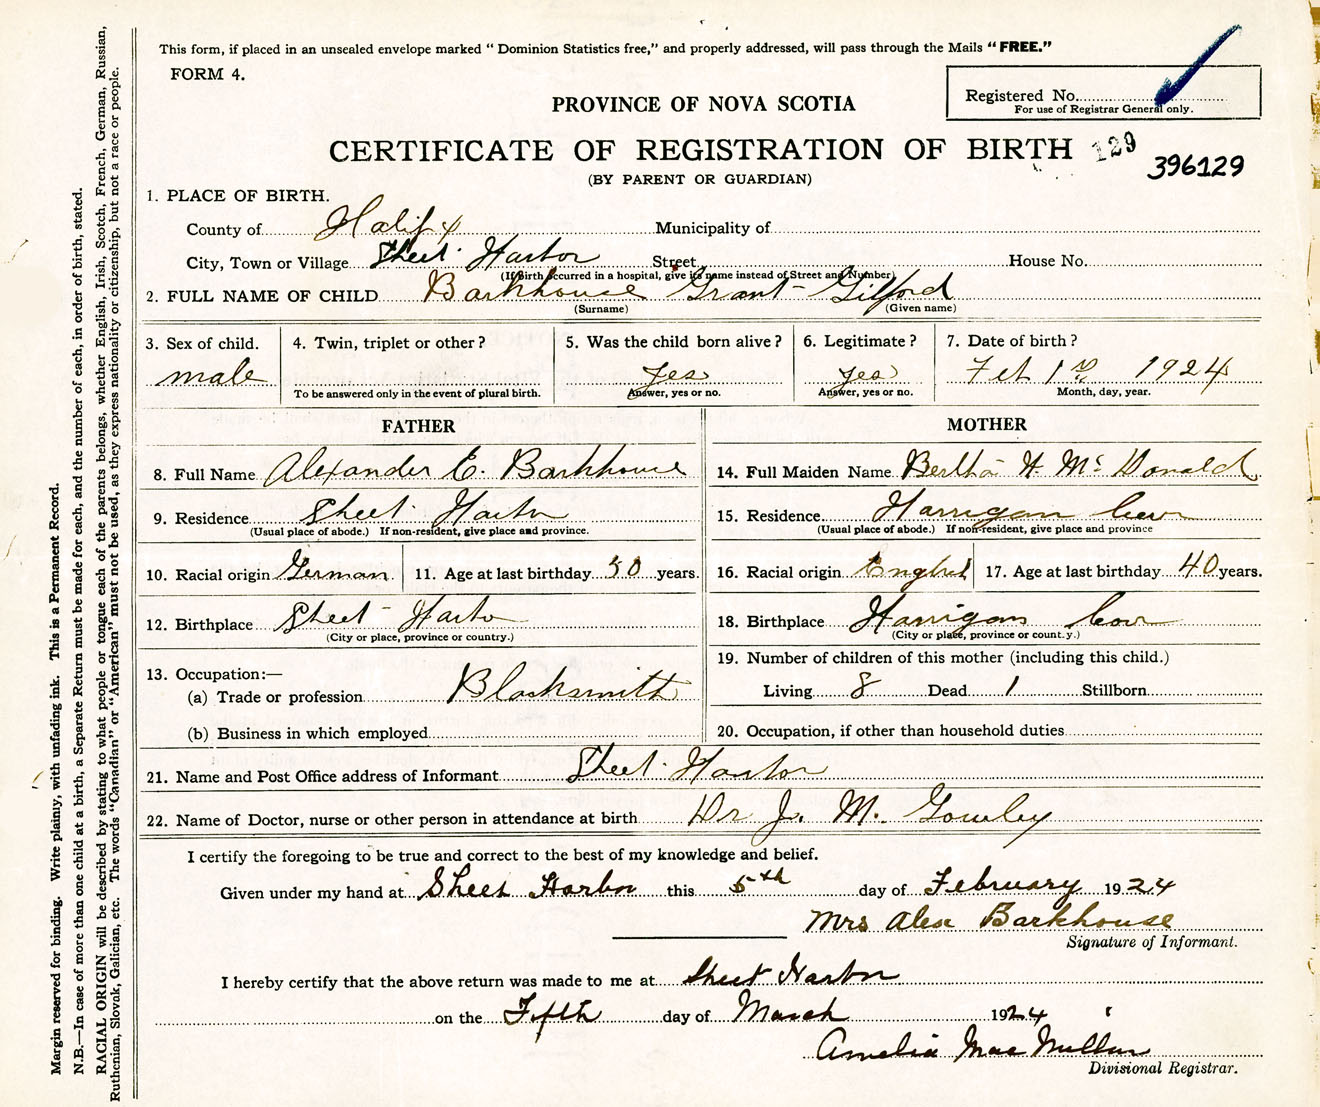 This form, if placed in an unsealed envelope marked "Dominion Statistics free," and properly addressed, will pass through the Mails "FREE."
FORM 4.
Registered No.
For use of Registrar General only.
PROVINCE OF NOVA SCOTIA
CERTIFICATE OF REGISTRATION OF BIRTH 129
396129
(BY PARENT OR GUARDIAN)
1. PLACE OF BIRTH.
County of Halifx Municipality of
City, Town or Village Sheet Harbor Street House No.
(If birth occurred in a hospital, give its name instead of Street and Number)
2. FULL NAME OF CHILD Barkhouse Grant Gilford
(Surname) (Given name)
3. Sex of child. 4. Twin, triplet or other? 5. Was the child born alive? 6. Legitimate? 7. Date of birth?
male yes yes Feb 1st 1924
To be answered only in the event of plural birth. Answer, yes or no. Answer, yes or no. Month, day, year.
FATHER MOTHER
8. Full Name Alexander E. Barkhouse 14. Full Maiden Name Bertha H. McDonald
9. Residence Sheet Harbor 15. Residence Harrigan Cove
(Usual place of abode.) If non-resident, give place and province. (Usual place of abode.) If non-resident, give place and province
10. Racial origin German 11. Age at last birthday 50 years. 16. Racial origin English 17. Age at last birthday 40 years.
12. Birthplace Sheet Harbor 18. Birthplace Harrigan Cove
(City or place, province or country.) (City or place, province or count.y.)
19. Number of children of this mother (including this child.)
13. Occupation:—
(a) Trade or profession Blacksmith Living 8 Dead 1 Stillborn
(b) Business in which employed 20. Occupation, if other than household duties
21. Name and Post Office address of Informant Sheet Harbor
22. Name of Doctor, nurse or other person in attendance at birth Dr J. M.
I certify the foregoing to be true and correct to the best of my knowledge and belief.
Given under my hand at Sheet Harbor this 5th day of February 1924
Mrs Alex Barkhouse
Signature of Informant.
I hereby certify that the above return was made to me at Sheet Harbor
on the Fifth day of March 1924
Amelia MacMillan
Divisional Registrar.
Margin reserved for binding. Write plainly, with unfading ink. This is a Permanent Record.
N.B.—In case of more than one child at a birth, a Separate Return must be made for each, and the number of each, in order of birth, stated.
RACIAL ORIGIN will be described by stating to what people or tongue each of the parents belongs, whether English, Irish, Scotch, French, German, Russian,
Ruthenian, Slovak, Galician, etc. The words "Canadian" or "American" must not be used, as they express nationality or citizenship, but not a race or people.